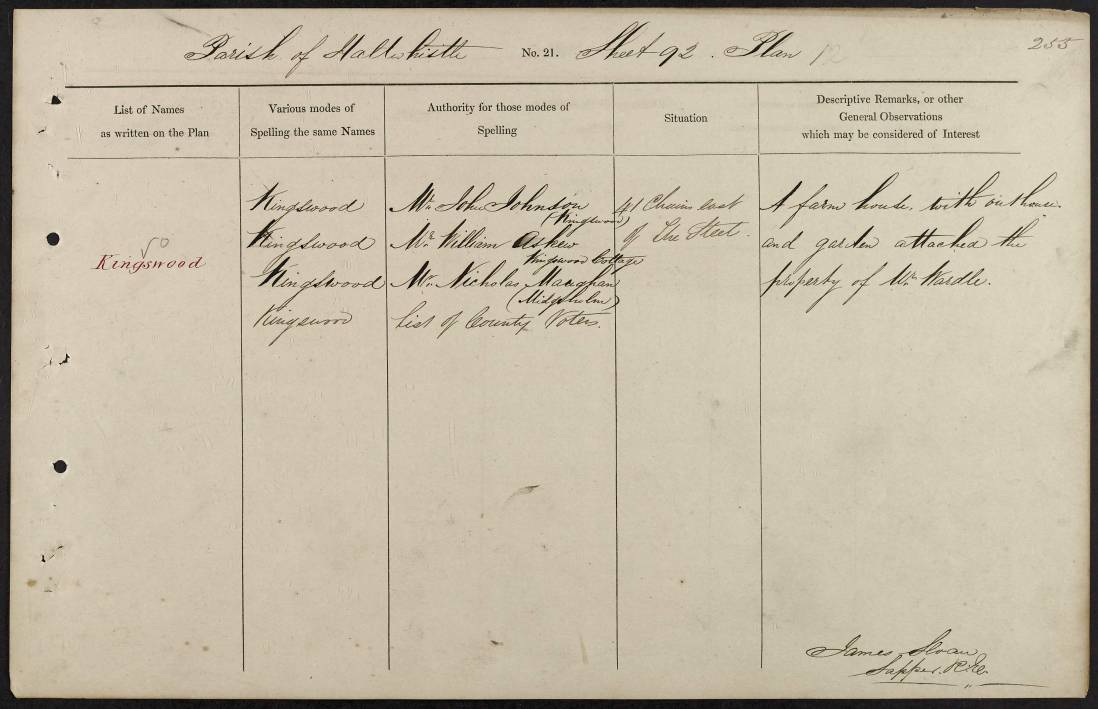 Parish of Haltwhistle No. 21. Sheet 92. Plan 12
255
List of Names
as written on the Plan
Various modes of
Spelling the same Names
Authority for those modes of
Spelling
Situation
Descriptive Remarks, or other
General Observations
which may be considered of Interest
Kingswood
Kingswood
Kingswood
Kingswood
Kingswood
Mr. John Johnson
(Kingswood)
Mr. William Askew
Kingswood Cottage
Mr. Nicholas Maughan
(Midgeholm)
List of County Voters.
41 Chains east
of The Steet.
A farm house. with outhouse.
and garden attached the
property of Wm Wardle.
James Sloan
Sapper. R.E.